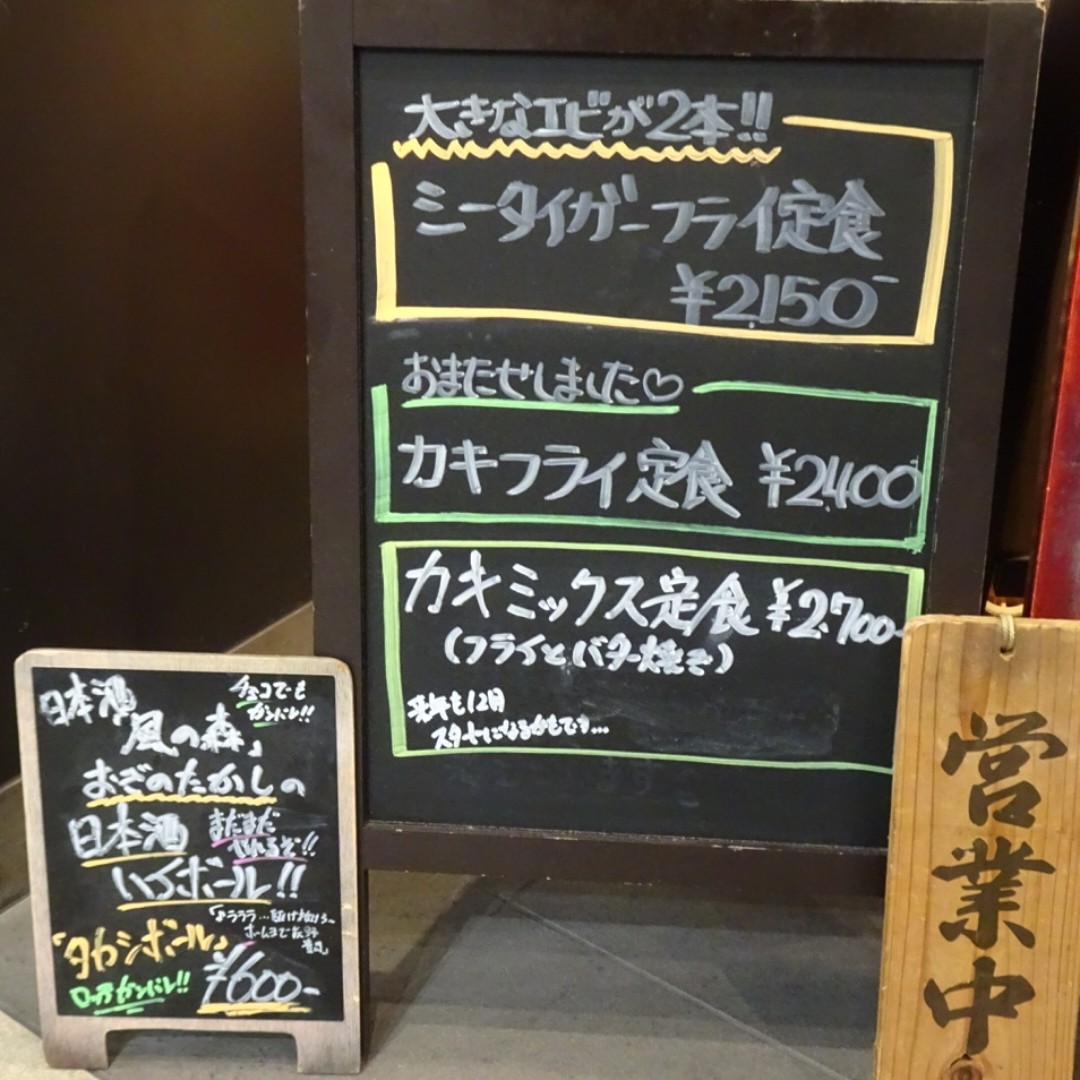 大きなエビが2本!!
シータイガーフライ定食
¥2,150-
おまたせしました♡
カキフライ定食 ¥2,400
カキミックス定食 ¥2,700-
(フライとバター焼き)
12月
スタートになるかもです…
日本酒
チョコでも
ガンバレ!!
風の森」
おぞのたかしの
日本酒
まだまだ
やれるぞ!!
ハイボール!!
「♪ラララ…
ホームまで
「タカシボール」
ロッテガンバレ!!
¥600-
営業中